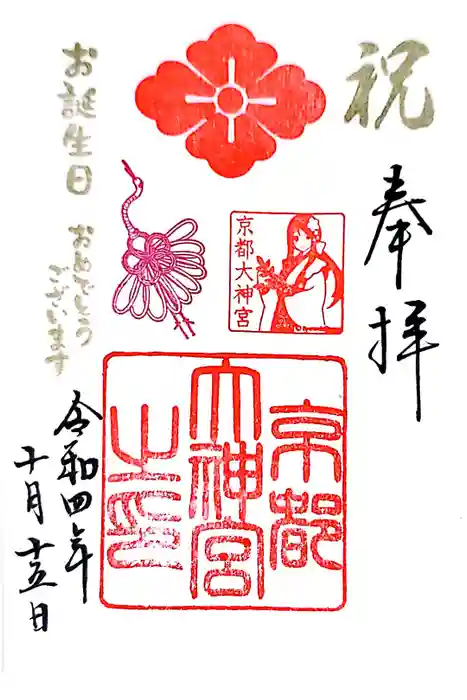 祝
奉拝
京都大神宮
京都
大神宮
之印
お誕生日
おめでとう
ございます
令和四年
十月十五日